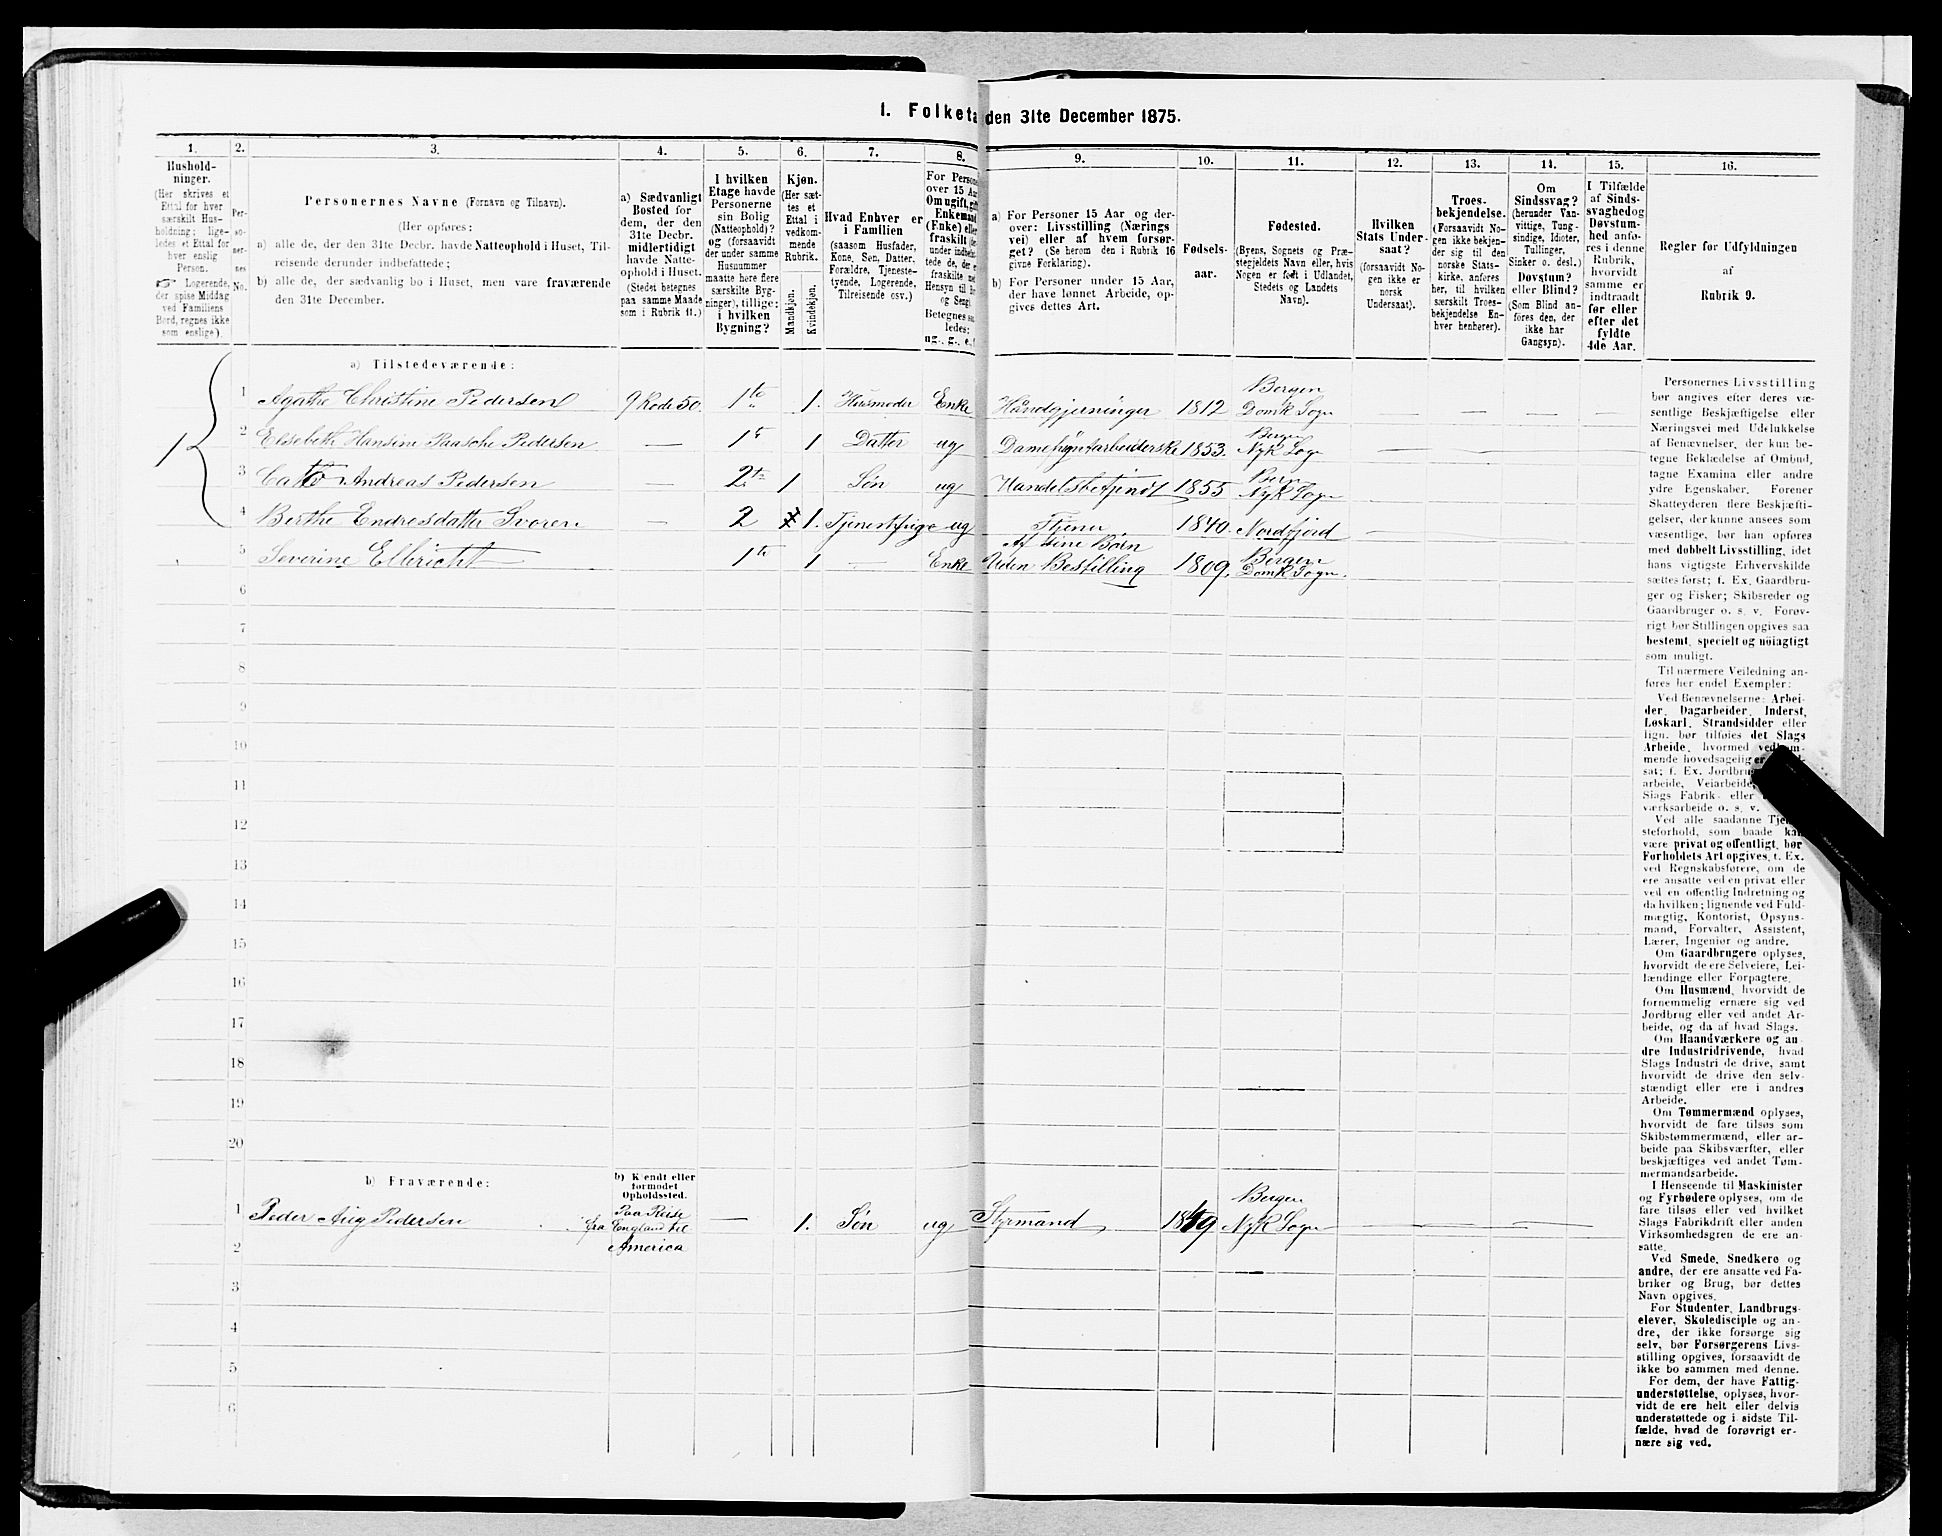 1. Folketæ den 31te December 1875.
1. 2. 3. 4. 5. 6. 7. 8. 9. 10. 11. 12. 13. 14. 15. 16.
Hushold-
ninger.
(Her skrives et
Ettal for hver
særskilt Hus-
holdning; lige-
ledes et Ettal for
hver enslig
Person.
☞ Logerende,
der spise Middag
ved Familiens
Bord, regnes ikke
som enslige).
Per-
so-
ner-
nes
No.
Personernes Navne (Fornavn og Tilnavn).
(Her opføres:
a) alle de, der den 31te Decbr. havde Natteophold i Huset, Til-
reisende derunder indbefattede;
b) alle de, der sædvanlig bo i Huset, men vare fraværende
den 31te December.
a) Sædvanligt
Bosted for
dem, der den
31te Decbr.
midlertidigt
havde Natte-
ophold i Huset.
(Stedet betegnes
paa samme Maade
som i Rubrik 11.)
I hvilken
Etage havde
Personerne
sin Bolig
(Natteophold)?
og (forsaavidt
der under samme
Husnummer
maatte høre flere
særskilte Byg-
ninger), tillige:
i hvilken
Bygning?
Kjøn.
(Her sæt-
tes et
Ettal i
vedkom-
mende
Rubrik.
Mandkjøn.
Kvindekjøn.
Hvad Enhver er
i Familien
(saasom Husfader,
Kone, Søn, Datter,
Forældre, Tjeneste-
tyende, Logerende,
Tilreisende osv.)
For Persone
over 15 Aa
Om ugift, gift
Enkemand
(Enke) eller
fraskilt (der
under indbefat-
tede de, der e
fraskilte me
Hensyn til Bo
og Seng).
Betegnes saa
ledes:
ug., g., e., f
a) For Personer 15 Aar og der-
over: Livsstilling (Nærings
vei) eller af hvem forsør-
get? (Se herom den i Rubrik 16
givne Forklaring).
b) For Personer under 15 Aar,
der have lønnet Arbeide, op-
gives dettes Art.
Fødsels-
aar.
Fødested.
(Byens, Sognets og Præ-
stegjeldets Navn eller, hvis
Nogen er født i Udlandet,
Stedets og Landets
Navn).
Hvilken
Stats Under-
saat?
(forsaavidt No-
gen ikke er
norsk
Undersaat).
Troes-
bekjendelse.
(Forsaavidt No-
gen ikke bekjen-
der sig til den
norske Stats-
kirke, anføres
her, til hvilken
særskilt Troes-
bekjendelse En-
hver henhører).
Om
Sindssvag?
(herunder Van-
vittige, Tung-
sindige, Idioter,
Tullinger,
Sinker o. desl.)
Døvstum?
eller Blind?
(Som Blind an-
føres den, der
ikke har
Gangsyn).
I Tilfælde
af Sinds-
svaghed og
Døvstum-
hed anfø-
res i denne
Rubrik,
hvorvidt
samme er
indtraadt
før eller
efter det
fyldte
4de Aar.
Regler før Udfyldningen
af
Rubrik 9.
a) Tilstedeværende:
1 Agathe Christine Pedersen 9 Rode 50. 1te 1. Husmoder Enke Håndgjerninger 1812 Bergen Domk Sogn
2 Elisebeth Hansine Paasche Pedersen — 1te 1 Datter ug Damehøyetarbeiderske 1853. Bergen Nyk Sogn
3 Cato Andreas Pedersen — 2te 1 Søn ug Handelsbetjendt 1855 Berg Nyk Sogn
4 Berthe Endresdatter Svoren — 2 1. Tjenestpige ug Tjener 1840. Nordfjord
5 Severine Ellericht 1te 1 — Enke Af sine Børn Uden Bestilling 1809. Bergen Domk Sogn.
6
7
8
9
10
11
12
13
14
15
16
17
18
19
20
b) Fraværende:
b) Kjendt eller
formodet
Opholdssted.
1 Peder Aug Pedersen Paa Reise fra England til America — 1. Søn ug Styrmand 1849 Bergen Nyk Sogn
2
3
4
5
6
Personernes Livsstilling
bør angives efter deres væ-
sentlige Beskjæftigelse eller
Næringsvei med Udelukkelse
af Benævnelser, der kun be-
tegne Beklædelse af Ombud,
tagne Examina eller andre
ydre Egenskaber. Forener
Skatteyderen flere Beskjæfti-
gelser, der kunne ansees som
væsentlige, bør han opføres
med dobbelt Livsstilling, idet
hans vigtigste Erhvervskilde
sættes først; f. Ex. Gaardbru-
ger og Fisker; Skibsreder og
Gaardbruger o. s. v. Forøv-
rigt bør Stillingen opgives saa
bestemt, specielt og nøiagtigt
som muligt.
Til nærmere Veiledning an-
føres her endel Exempler:
Ved Benævnelserne: Arbei-
der, Dagarbeider, Inderst,
Løskarl, Strandsidder eller
lign. bør tilføies det Slags
Arbeide, hvormed vedkom-
mende hovedsagelig er
sat; f. Ex. Jordbru
arbeide, Veiarbeide,
Slags Fabrik- eller
værksarbeide o. s. v.
Ved alle saadanne Tje
steforhold, som baade kan
være privat og offentligt, bør
Forholdets Art opgives, f. Ex.
ved Regnskabsførere, om de
ere ansatte ved en privat eller
ved en offentlig Indretning og
da hvilken; lignende ved Fuld-
mægtig, Kontorist, Opsyns-
mand, Forvalter, Assistent,
Lærer, Ingeniør og andre.
Om Gaardbrugere oplyses,
hvorvidt de ere Selveiere, Lei-
lændinge eller Forpagtere.
Om Husmænd, hvorvidt de
fornemmelig ernære sig ved
Jordbrug eller ved andet Ar-
beide, og da af hvad Slags.
Om Haandværkere og an-
dre Industridrivende, hvad
Slags Industri de drive, samt
hvorvidt de drive den selv-
stændigt eller ere i andres
Arbeide.
Om Tømmermænd oplyses,
hvorvidt de fare tilsøs som
Skibstømmermænd, eller ar-
beide paa Skibsværfter, eller
beskjæftiges ved andet Tøm-
mermandsarbeide.
I Henseende til Maskinister
og Fyrbødere oplyses, om de
fare tilsøs eller ved hvilket
Slags Fabrikdrift eller anden
Virksomhedsgren de ere an-
satte.
Ved Smede, Snedkere og
andre, der ere ansatte ved Fa-
briker og Brug, bør dettes
Navn opgives.
For Studenter, Landbrugs-
elever, Skoledisciple og an-
dre, der ikke forsørge sig
selv, bør Forsørgerens Livs-
stilling opgives, forsaavidt de
ikke bo sammen med denne.
For dem, der have Fattig-
understøttelse, oplyses, hvor-
vidt de ere helt eller delvis
understøttede og i sidste Til-
fælde, hvad de forøvrigt er-
nære sig ved.